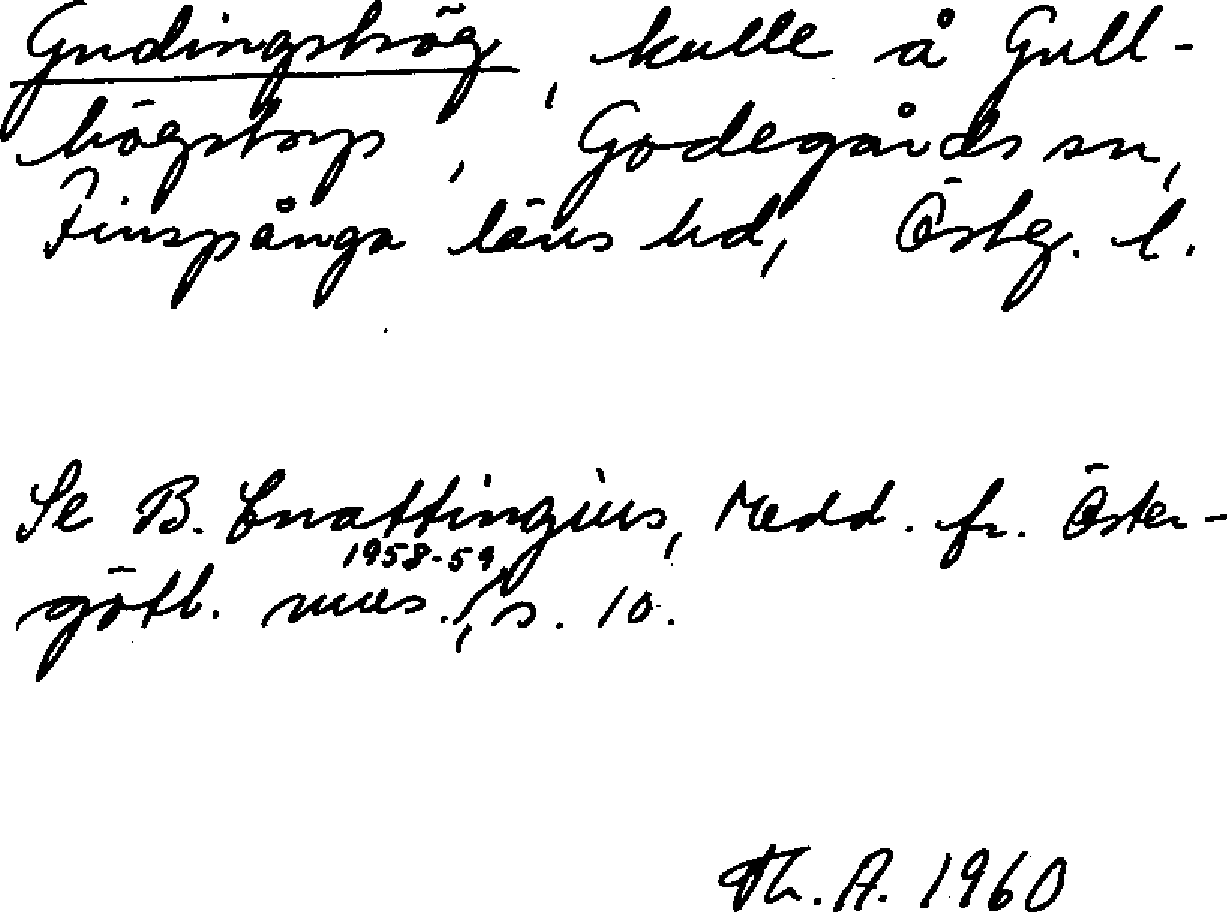 Gudingshög, kulle å Gull-
högstorp, Godegårds sn,
Finspånga läns hd, Österg. l.
Se B. Cnattingius, Medd. fr. Öster-
götl. mus. 1958-59, s. 10.
Th. A. 1960